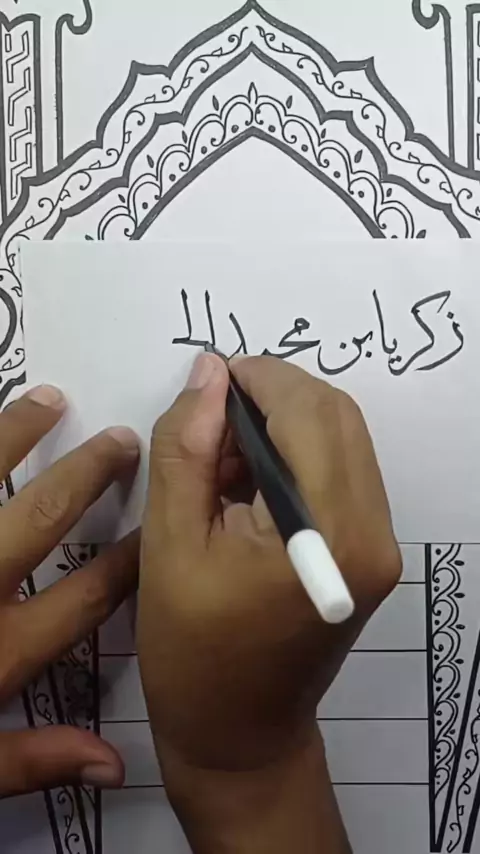 زكريا بن محمد ال